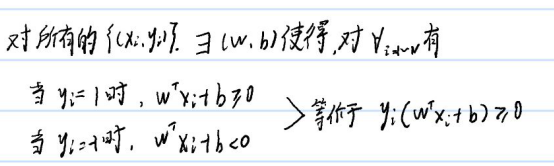 对所有的{(xi,yi)}, ∃(w,b)使得,对∀i=1~N有
当yi=1时, wᵀxi+b≥0
当yi=-1时, wᵀxi+b<0
>等价于 yi(wᵀxi+b)≥0